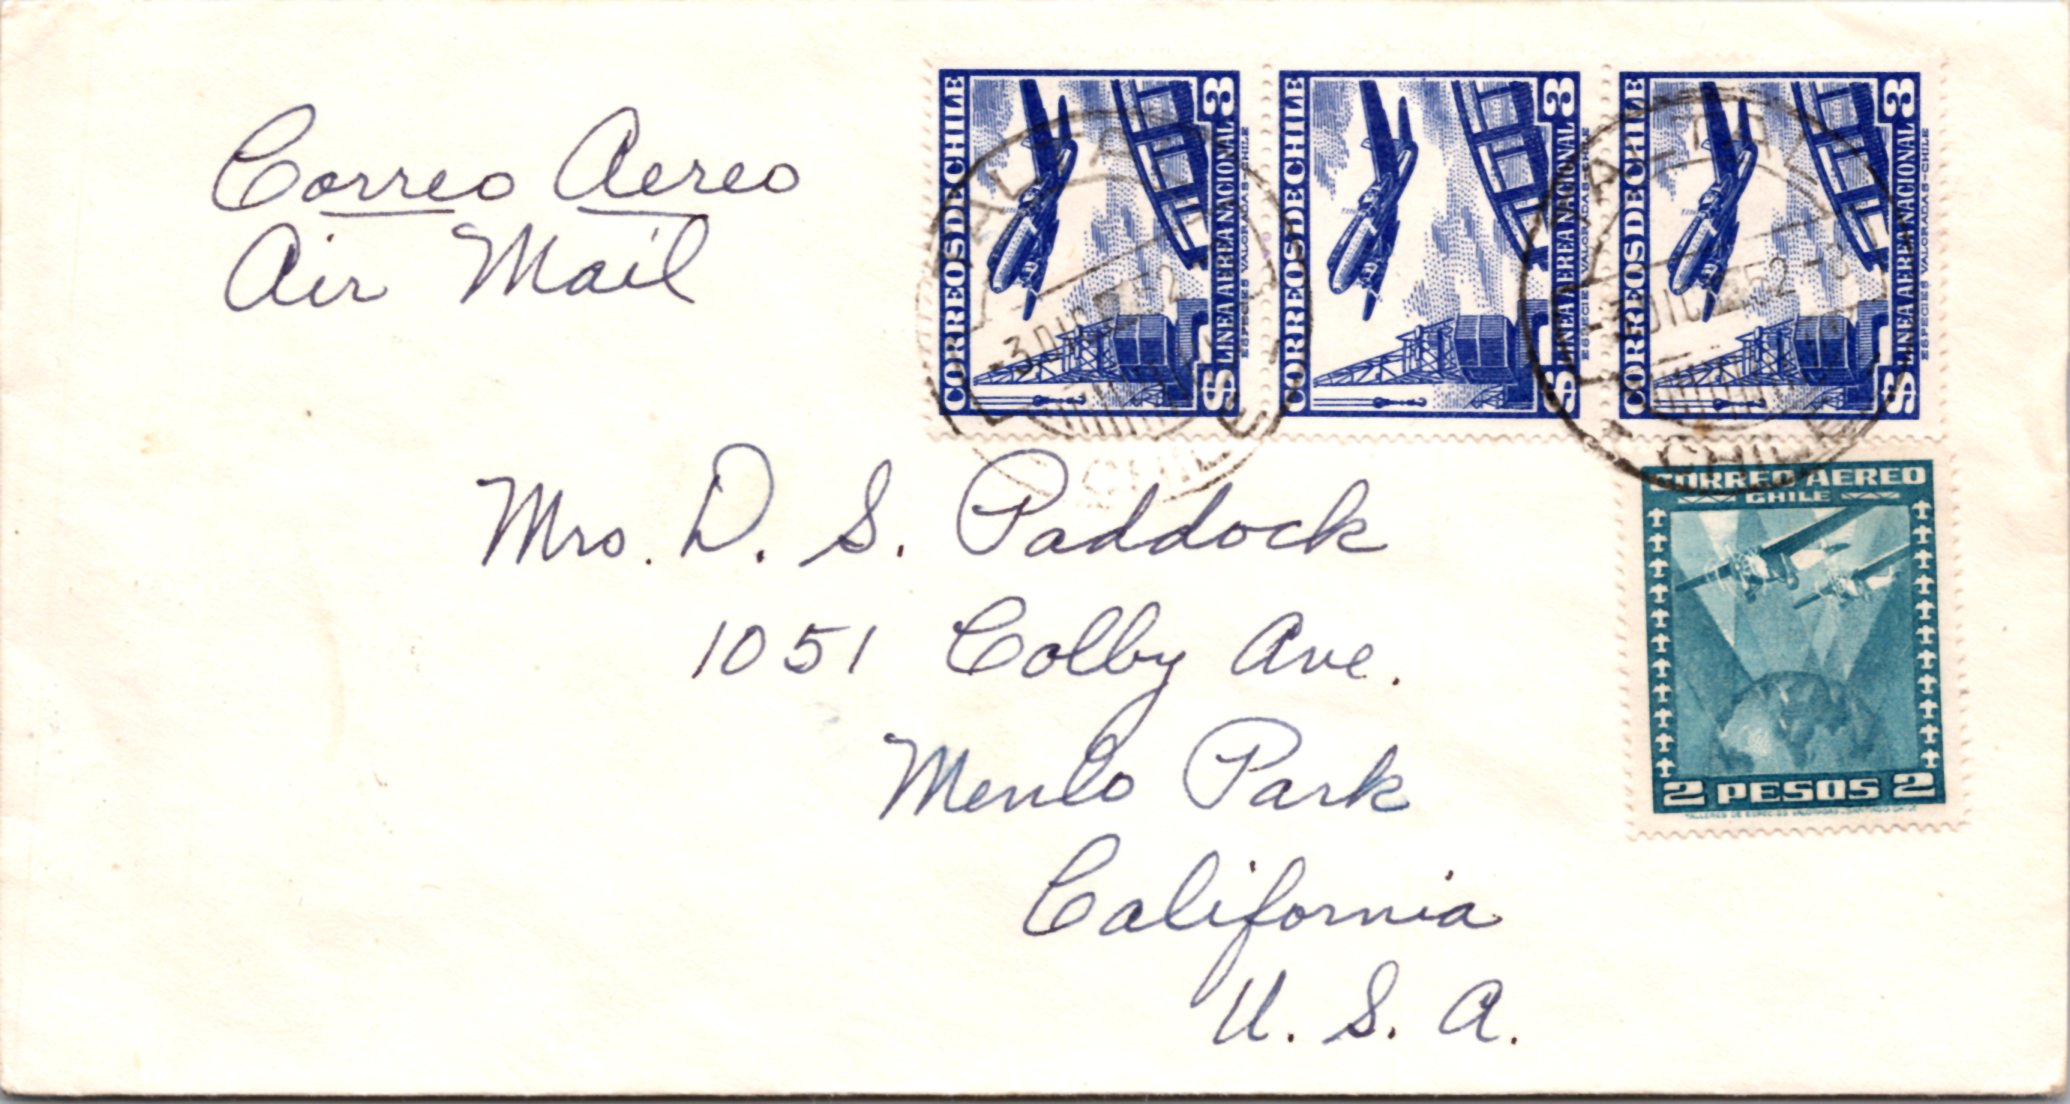 Correo Aereo
Air Mail
CORREOS DE CHILE
LINEA AEREA NACIONAL
$ 3
ESPECIES VALORADAS-CHILE
CORREOS DE CHILE
LINEA AEREA NACIONAL
$ 3
ESPECIES VALORADAS-CHILE
CORREOS DE CHILE
LINEA AEREA NACIONAL
$ 3
ESPECIES VALORADAS-CHILE
-3 DIC 52
CHILE
DIC 52
CHILE
CORREO AEREO
CHILE
2 PESOS 2
TALLERES DE ESPECIES VALORADAS
Mrs. D. S. Paddock
1051 Colby Ave.
Menlo Park
California
U. S. A.